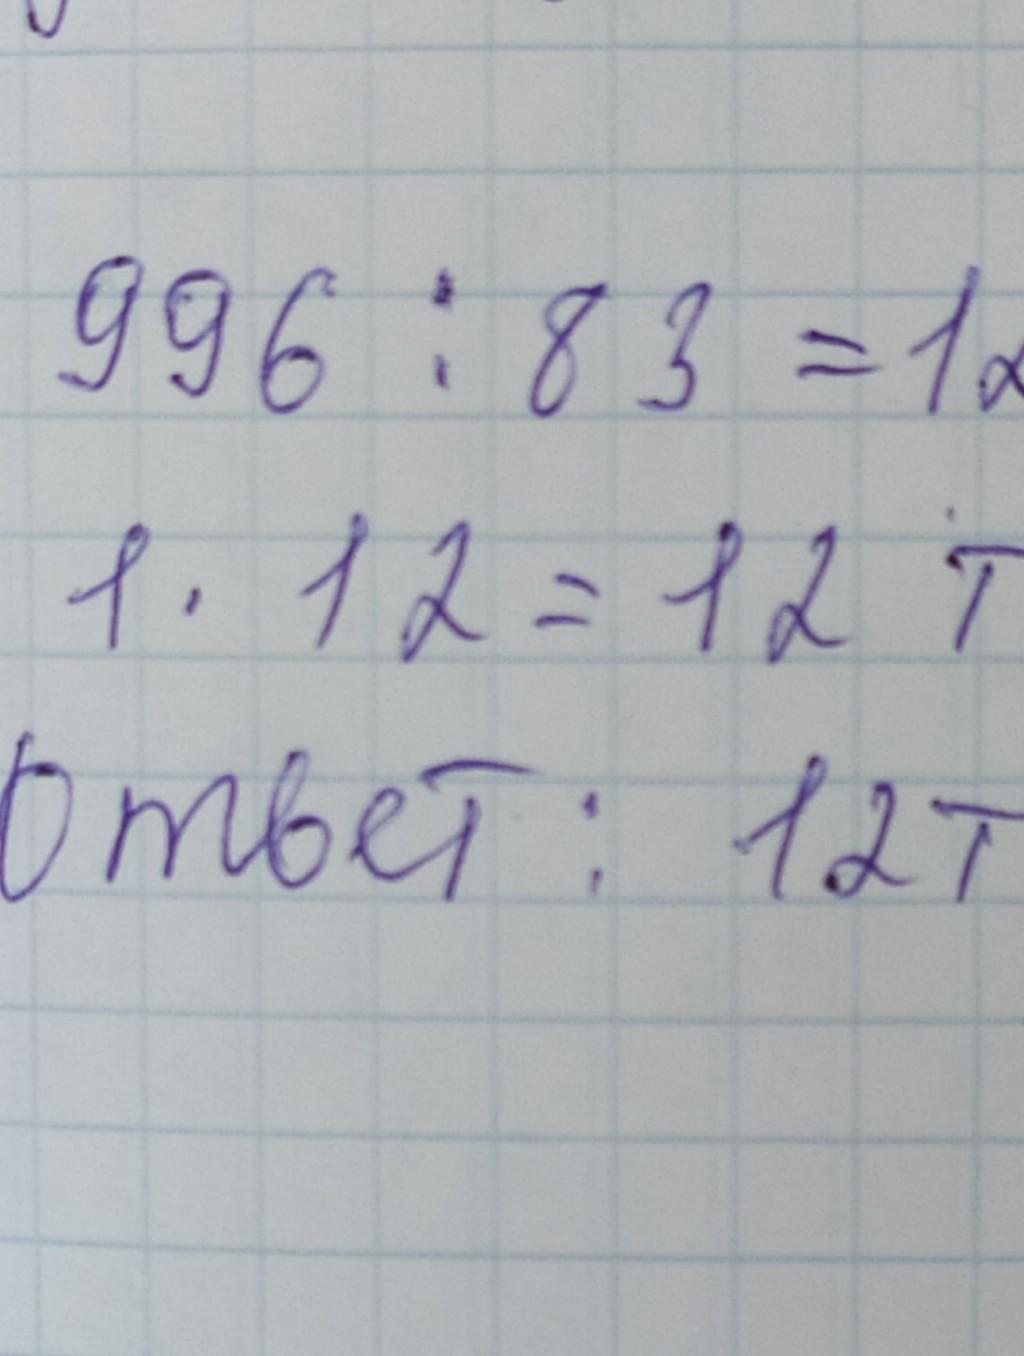 996 : 83 = 12
1 · 12 = 12 т
Ответ: 12т